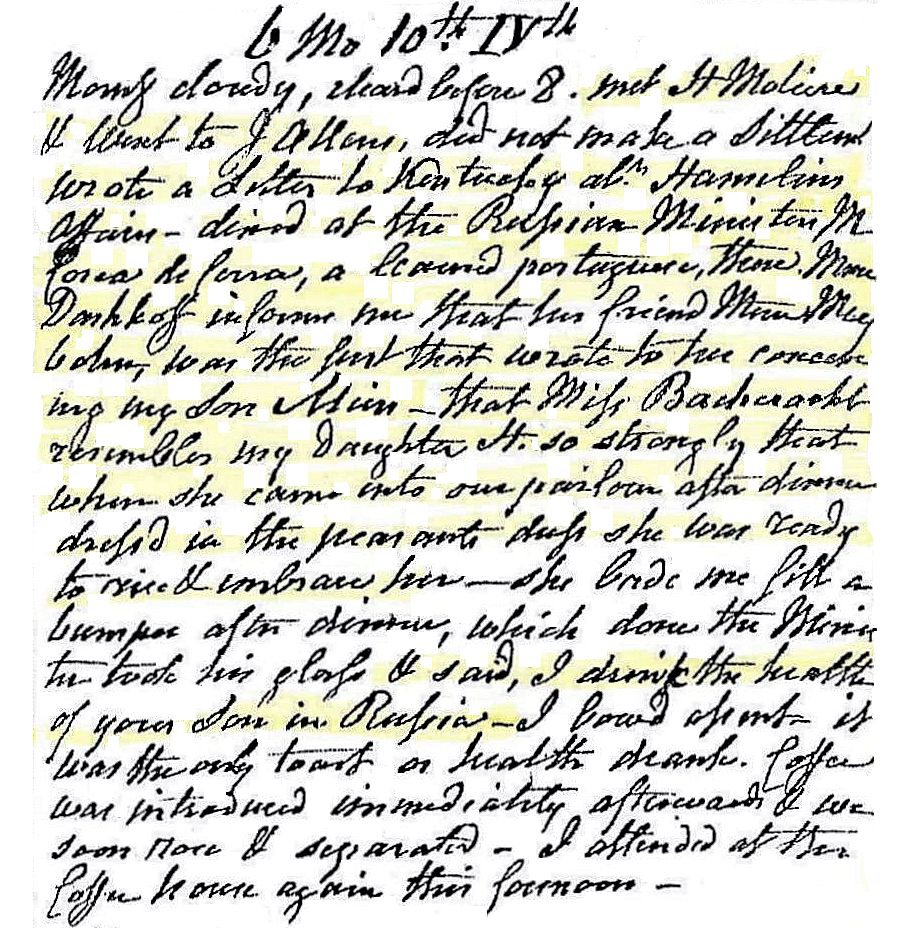 6 Mo 10th. IVth
Morng cloudy, cleard before 8. met H Moliere
& Went to J Allens, did not make a Sittlemt
wrote a Letter to Kentucky abt. Hamelins
affairs - dined at the Russian Ministers, M
Corea de Serra, a learned portuguese, there. Mme
Dashkoff informd me that her friend Mme
was the first that wrote to her concern
ing my Son - that Miss Bachracht
resembles my Daughter H. so strongly that
when she came into our parlour after dinner
dressd in the peasants dress she was ready
to rise & embrace her - she bade me fill a
bumper after dinner, which done the Minis
ter took his glass & said, I drink the health
of your Son in Russia - I bowd assent - it
was the only toast or health drank. Coffee
was introduced immediately afterwards & we
soon rose & separated - I attended at the
Coffee house again this forenoon -